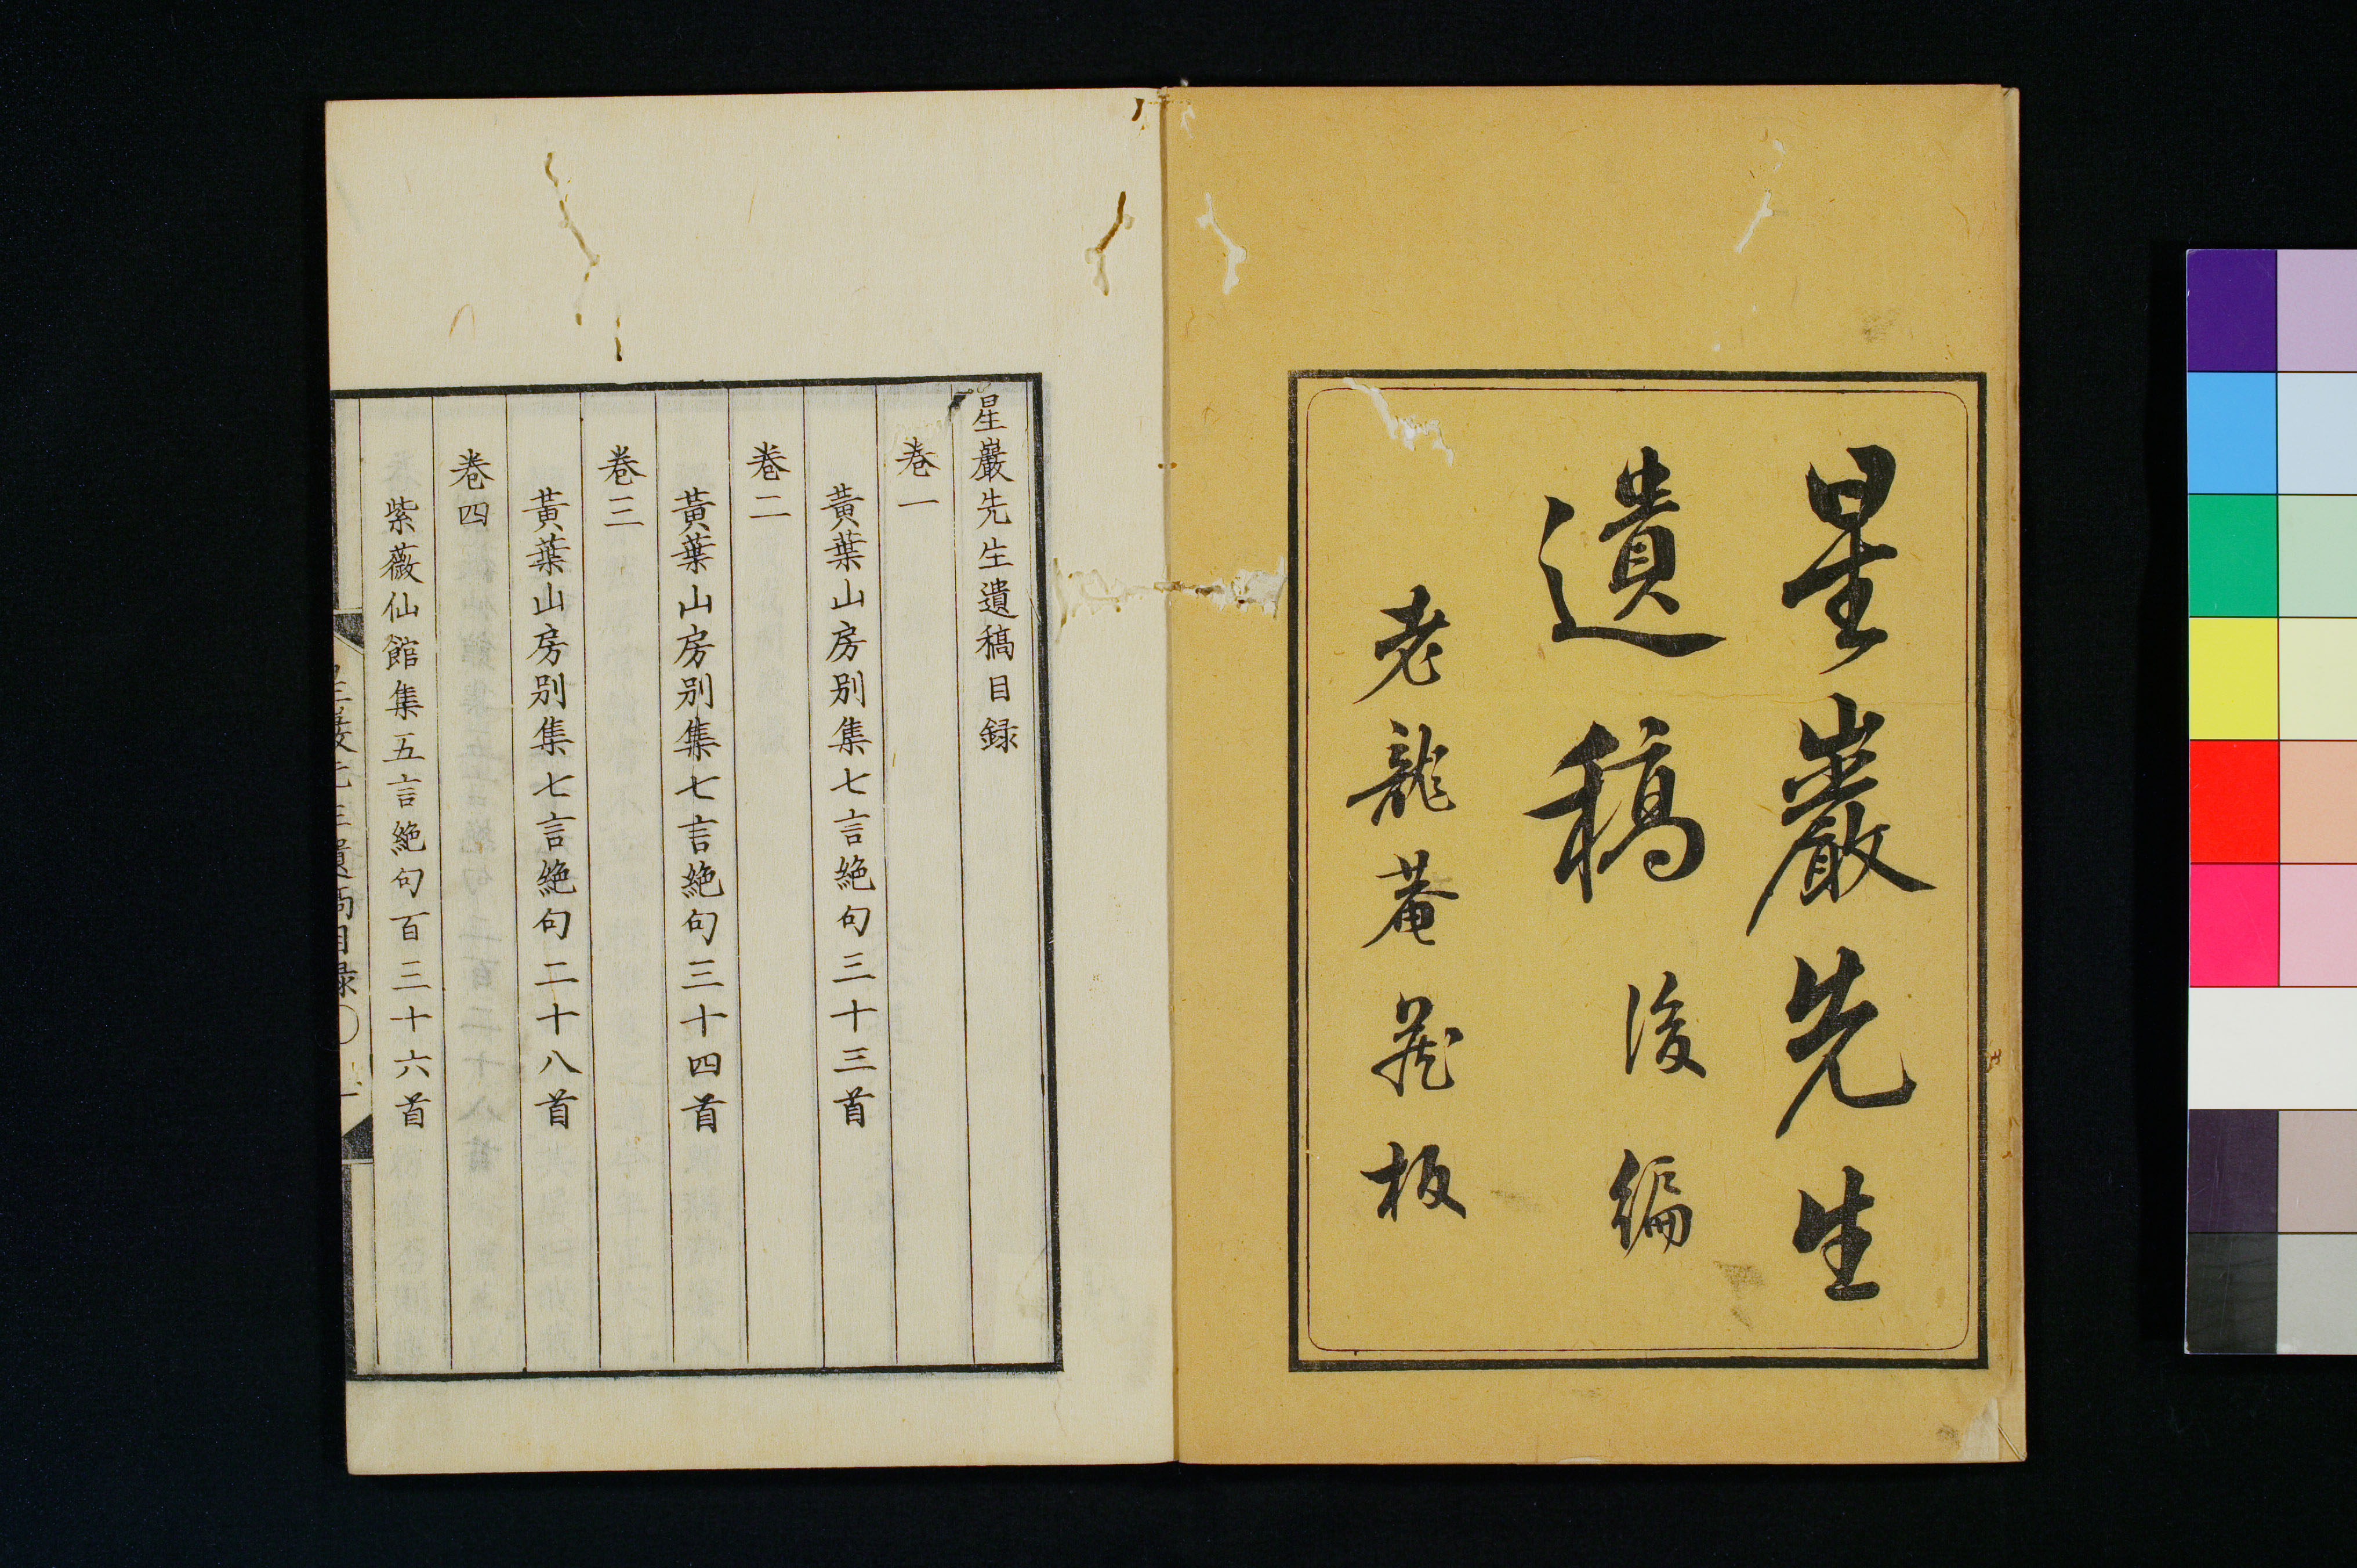 星巖先生
遺稿 後編
老龍菴藏板
星巖先生遺稿目録
卷一
黃葉山房別集七言絶句三十三首
卷二
黃葉山房別集七言絶句三十四首
卷三
黃葉山房別集七言絶句二十八首
卷四
紫薇仙館集五言絶句百三十六首
星巖先生遺稿目録〇 一